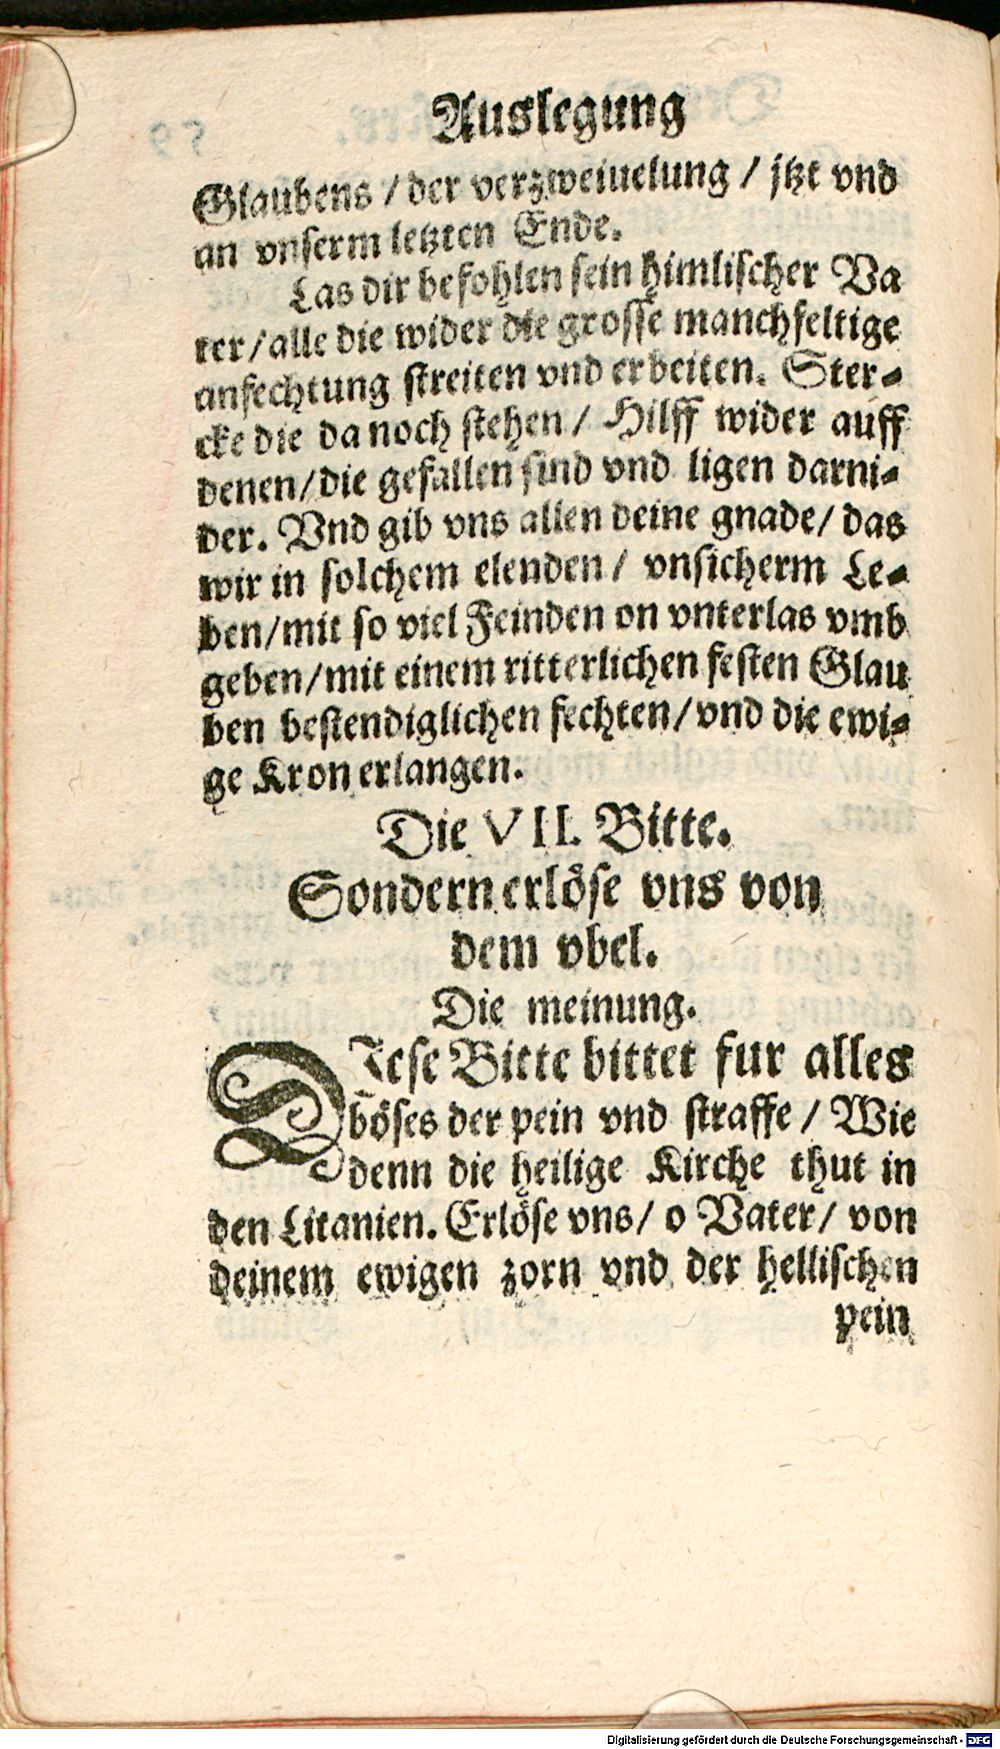 Auslegung
Glaubens / der verzweiuelung / jtzt vnd
an vnserm letzten Ende.
Las dir befohlen sein himlischer Va
ter/alle die wider die grosse manchfeltige
anfechtung streiten vnd erbeiten. Ster-
cke die da noch stehen / Hilff wider auff
denen/die gefallen sind vnd ligen darni-
der. Vnd gib vns allen deine gnade/ das
wir in solchem elenden / vnsicherm Le-
ben/mit so viel Feinden on vnterlas vmb
geben/mit einem ritterlichen festen Glau
ben bestendiglichen fechten/vnd die ewi-
ge Kron erlangen.
Die VII. Bitte.
Sondern erlöse vns von
dem vbel.
Die meinung.
DIese Bitte bittet fur alles
böses der pein vnd straffe / Wie
denn die heilige Kirche thut in
den Litanien. Erlöse vns/ o Vater/ von
deinem ewigen zorn vnd der hellischen
pein
Digitalisierung gefördert durch die Deutsche Forschungsgemeinschaft - DFG